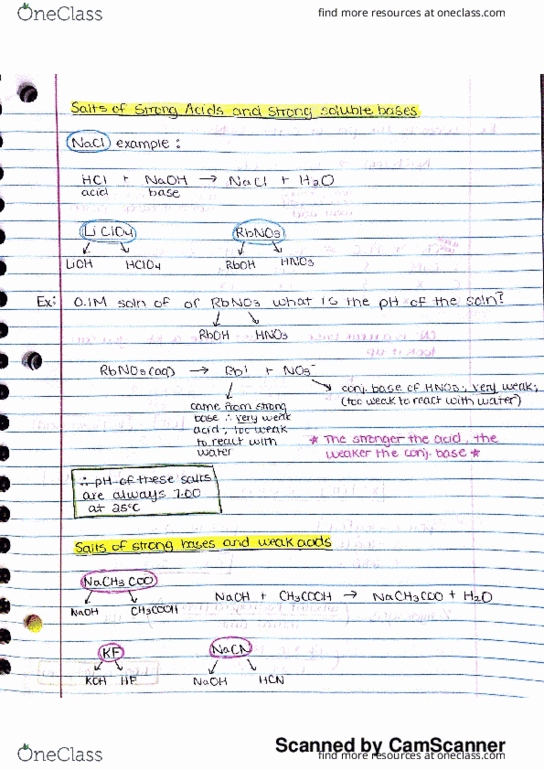 OneClass
find more resources at oneclass.com
Salts of Strong Acids and strong soluble bases
NaCl example:
HCl + NaOH → NaCl + H2O
acid base
LiClO4 RbNO3
LiOH HClO4 RbOH HNO3
Ex: 0.1M soln of or RbNO3 what is the pH of the soln?
RbOH HNO3
RbNO3(aq) → Rb+ + NO3-
conj. base of HNO3; very weak;
(too weak to react with water)
came from strong
base ∴ very weak
acid; too weak
to react with
water
* The stronger the acid, the
weaker the conj. base *
∴ pH of these salts
are always 7.00
at 25°C
Salts of strong bases and weak acids
NaCH3COO
NaOH CH3COOH
NaOH + CH3COOH → NaCH3COO + H2O
KF NaCN
KOH HF NaOH HCN
Scanned by CamScanner
OneClass
find more resources at oneclass.com